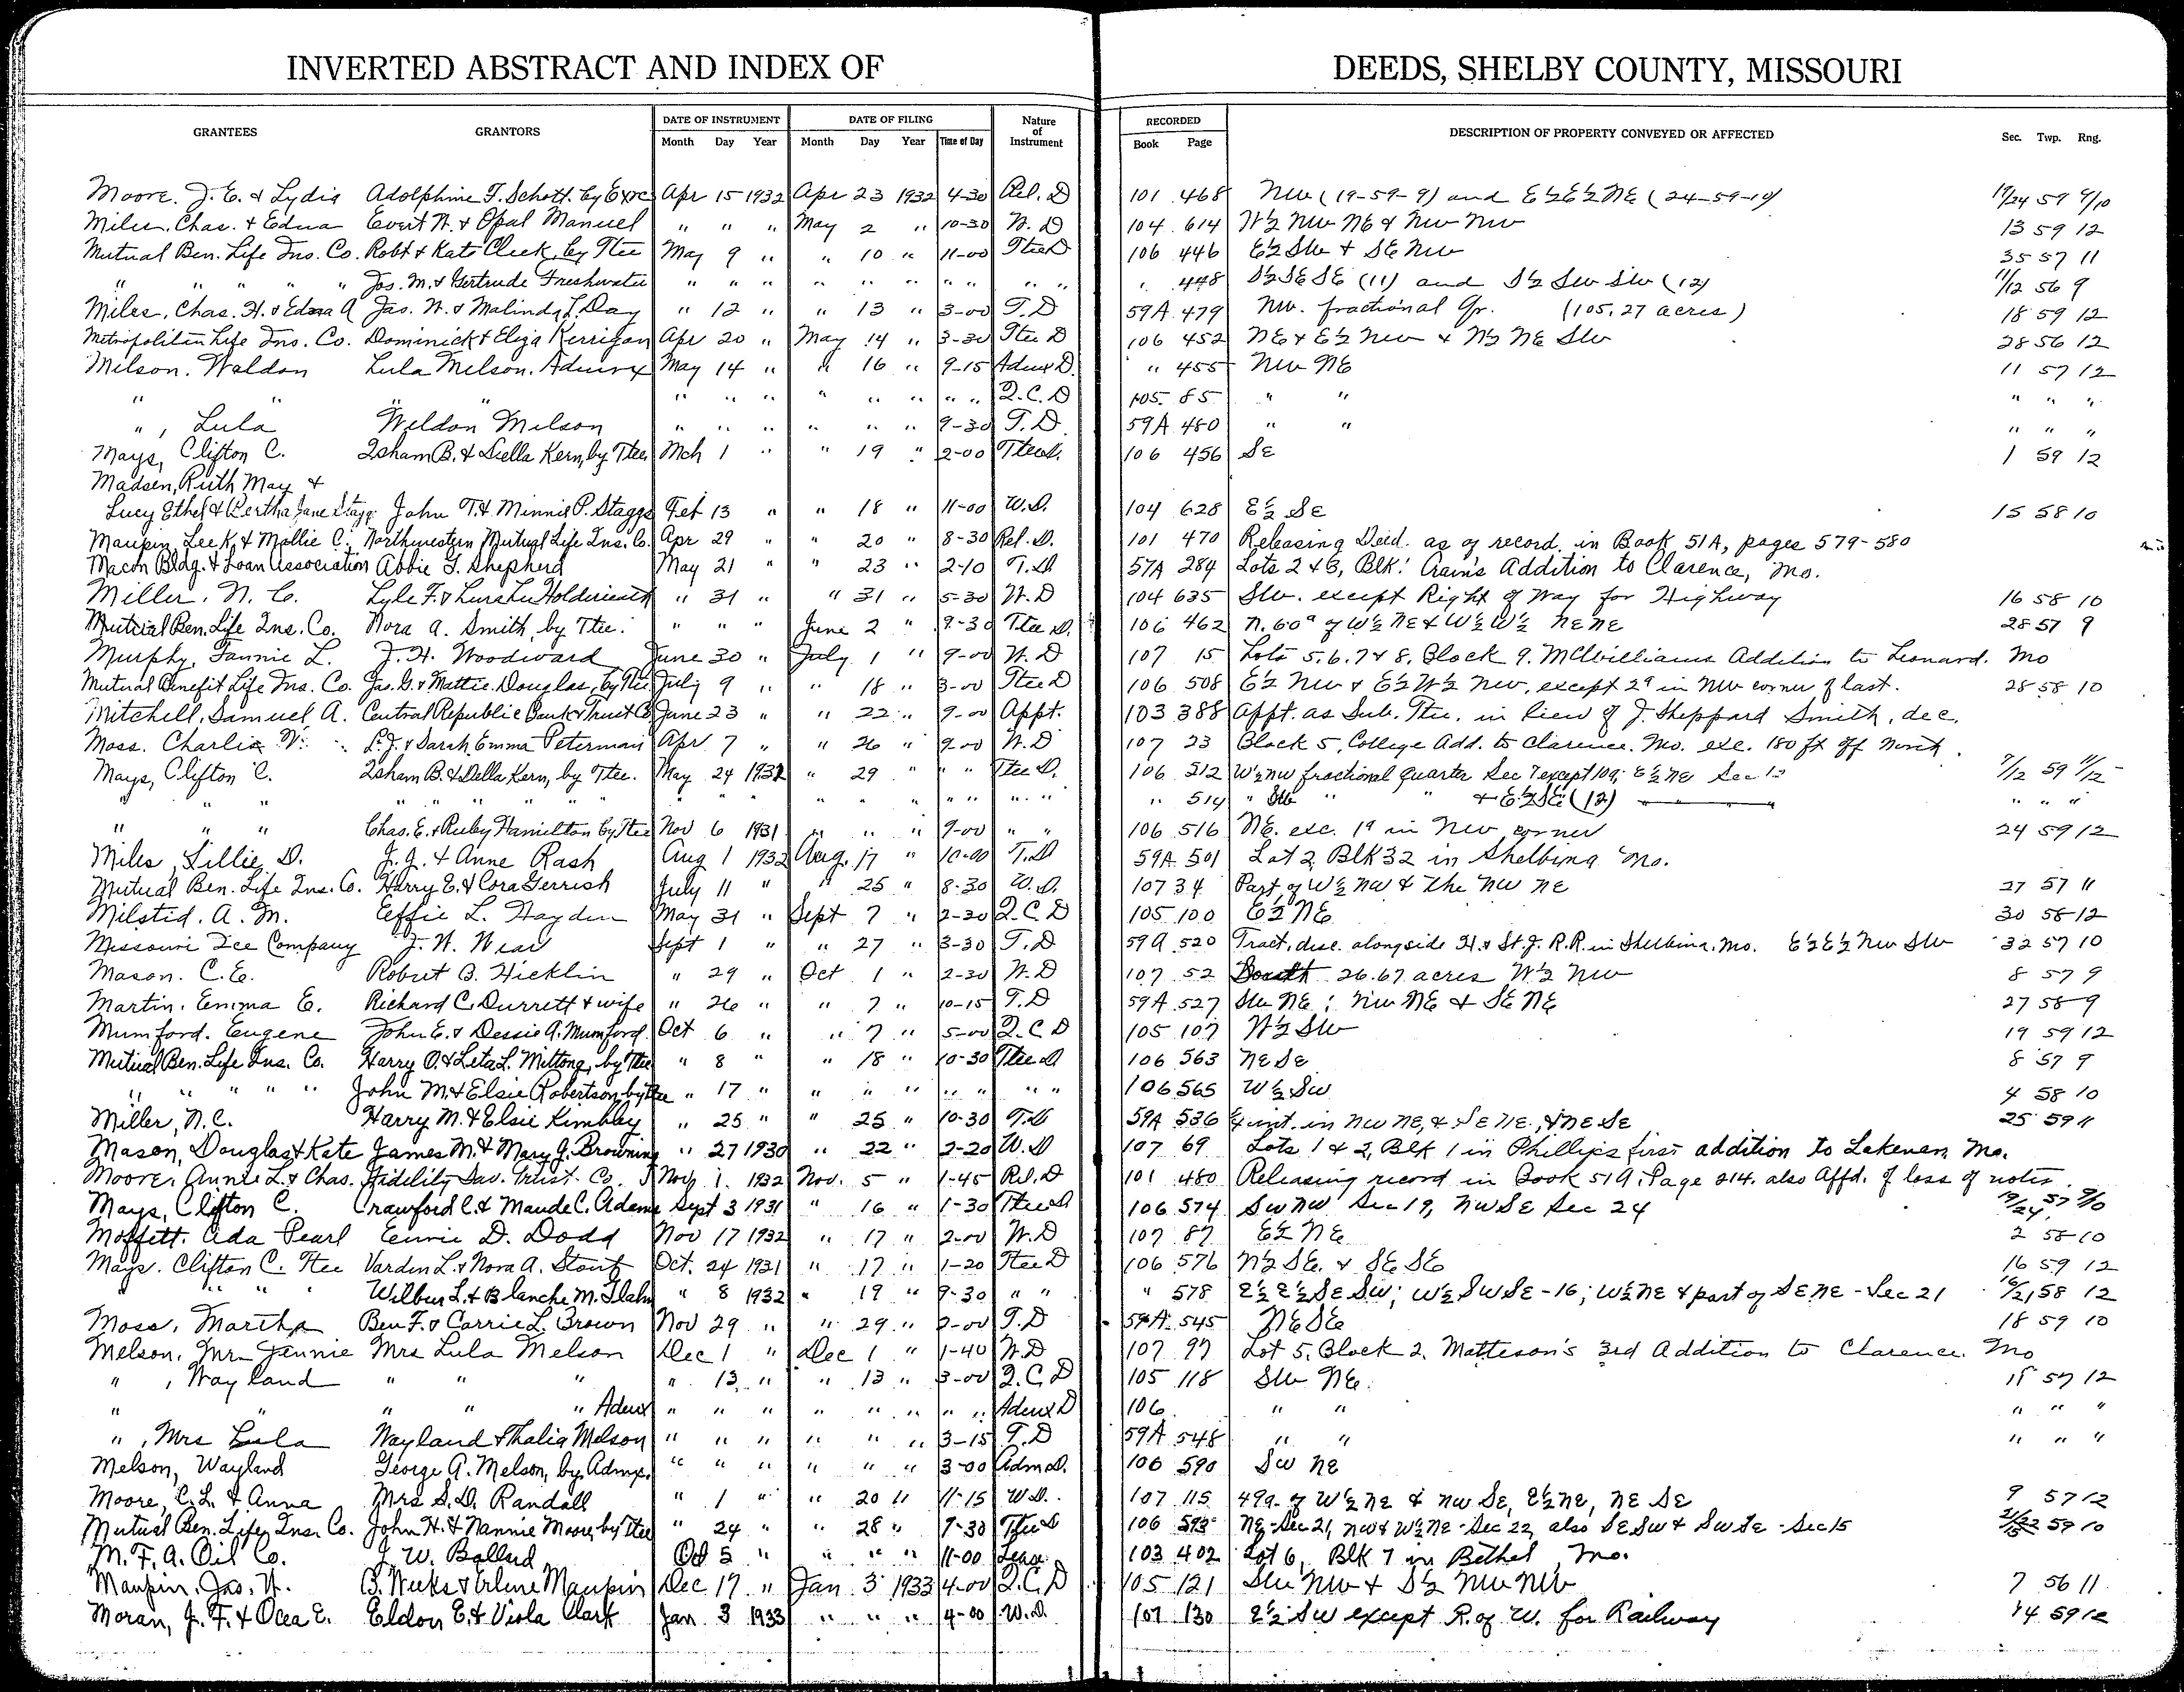 INVERTED ABSTRACT AND INDEX OF DEEDS, SHELBY COUNTY, MISSOURI
GRANTEES GRANTORS DATE OF INSTRUMENT DATE OF FILING Nature of Instrument RECORDED DESCRIPTION OF PROPERTY CONVEYED OR AFFECTED Sec. Twp. Rng.
Month Day Year Month Day Year Time of Day Book Page
Moore. J. E. & Lydia Adolphine F. Schott. by Exrc Apr 15 1932 Apr 23 1932 4-30 Rel. D 101 468 NW (19-59-9) and E½E½NE (24-59-10) 19/24 59 9/10
Miles, Chas. & Edna Evert W. & Opal Manuel " " " May 2 " 10-30 W. D 104 614 W½ NW NE & NW NW 13 59 12
Mutual Ben. Life Ins. Co. Robt & Kate Cleek, by Ttee May 9 " " 10 " 11-00 Ttee D 106 446 E½ SW & SE NW 35 57 11
" " " " Jos. M. & Gertrude Freshwater " " " " " " " " " " " 448 S½SE SE (11) and S½ SW SW (12) 11/12 56 9
Miles, Chas. H. & Edna A Jas. W. & Malinda L. Day " 12 " " 13 " 3-00 T. D 59A 479 NW. fractional Qr. (105.27 acres) 18 59 12
Metropolitan Life Ins. Co. Dominick & Eliza Kerrigan Apr 20 " May 14 " 3-30 Ttee D 106 452 NE & E½ NW & N½ NE SW 28 56 12
Melson. Weldon Lula Melson, Admrx May 14 " " 16 " 9-15 Admx D. " 455 NW NE 11 57 12
" " " " " " " " " " " Q. C. D 105 85 " " " " "
" , Lula Weldon Melson " " " " " " 9-30 T. D. 59A 480 " " " " "
Mays, Clifton C. Isham B. & Della Kern, by Ttee Mch 1 " " 19 " 2-00 Ttee D. 106 456 SE 1 59 12
Madsen, Ruth May &
Lucy Ethel & Bertha Jane Stagg John T. & Minnie P. Staggs Feb 13 " " 18 " 11-00 W. D. 104 628 E½ SE 15 58 10
Maupin, Lee K. & Mollie C. Northwestern Mutual Life Ins. Co. Apr 29 " " 20 " 8-30 Rel. D. 101 470 Releasing Deed. as of record. in Book 51A, pages 579-580
Macon Bldg. & Loan Association Abbie F. Shepherd May 21 " " 23 " 2-10 T. D 57A 284 Lots 2 & 3, Blk. Crain's Addition to Clarence, Mo.
Miller. N. C. Lyle F. & Holdcraft " 31 " " 31 " 5-30 W. D 104 635 SW. except Right of Way for Highway 16 58 10
Mutual Ben. Life Ins. Co. Nora A. Smith, by Ttee. " " " June 2 " 9-30 Ttee D. 106 462 N. 60a of W½ NE & W½ W½ NE NE 28 57 9
Murphy, Fannie L. J. H. Woodward June 30 " July 1 " 9-00 W. D 107 15 Lots 5, 6, 7 & 8, Block 9. McWilliams Addition to Leonard. Mo
Mutual Benefit Life Ins. Co. Jas. G. & Mattie Douglas, by Ttee July 9 " " 18 " 3-00 Ttee D 106 508 E½ NW & E½ W½ NW, except 2a in NW corner of last. 28 58 10
Mitchell, Samuel A. Central Republic Bank & Trust Co June 23 " " 22 " 9-00 Appt. 103 388 Appt. as Sub. Ttee. in lieu of J. Sheppard Smith, dec.
Moss. Charlie W. L. J. & Sarah Emma Peterman Apr 7 " " 26 " 9-00 W. D 107 23 Block 5, College Add. to Clarence. Mo. exc. 180 ft off North.
Mays, Clifton C. Isham B. & Della Kern, by Ttee. May 24 1932 " 29 " " " Ttee D. 106 512 W½ NW fractional Quarter Sec 7 except 10a; E½ NE Sec 12 7/12 59 11/12
" " " " " " " " " " " " " " " " " 514 " SW " " & E½SE (12) " " "
" " " Chas. E. & Ruby Hamilton by Ttee Nov 6 1931 " " " 9-00 " " 106 516 NE. exc. 1a in NW corner 24 59 12
Miles, Lillie D. J. J. & Anne Rash Aug 1 1932 Aug. 17 " 10-00 T. D 59A 501 Lot 2 Blk 32 in Shelbina Mo.
Mutual Ben. Life Ins. Co. Harry E. & Cora Gerrish July 11 " " 25 " 8-30 W. D. 107 34 Part of W½ NW & the NW NE 27 57 11
Milstid. A. M. Effie L. Hayden May 31 " Sept 7 " 2-30 Q. C. D 105 100 E½ NE 30 58 12
Missouri Ice Company J. W. Wear Sept 1 " " 27 " 3-30 T. D 59A 520 Tract, desc. alongside H. & St. J. R.R. in Shelbina, Mo. E½ E½ NW SW 32 57 10
Mason. C. E. Robert B. Hicklin " 29 " Oct 1 " 2-30 W. D 107 52 South 26.67 acres W½ NW 8 57 9
Martin, Emma E. Richard C. Durrett & wife " 26 " " 7 " 10-15 T. D 59A 527 SW NE; NW NE & SE NE 27 58 9
Mumford. Eugene John E. & Dessie A. Mumford Oct 6 " " 7 " 5-00 Q. C D 105 107 W½ SW 19 59 12
Mutual Ben. Life Ins. Co. Harry O. & Leta L. Mittong, by Ttee " 8 " " 18 " 10-30 Ttee D 106 563 NE SE 8 57 9
" " " " " John M. & Elsie Robertson, by Ttee " 17 " " " " " " " " 106 565 W½ SW 4 58 10
Miller, N. C. Harry M. & Elsie Kimbley " 25 " " 25 " 10-30 T. D 59A 536 int. in NW NE, & SE NE, & NE SE 25 59 11
Mason, Douglas & Kate James M. & Mary J. Browning " 27 1930 " 22 " 2-20 W. D 107 69 Lots 1 & 2, Blk 1 in Phillips first addition to Lakenan Mo.
Moore, Annie L. & Chas. Fidelity Sav. Trust. Co. Nov 1. 1932 Nov. 5 " 1-45 Rel. D 101 480 Releasing record in Book 51A, Page 214. also Affd. of loss of notes.
Mays, Clifton C. Crawford C. & Maude C. Adams Sept 3 1931 " 16 " 1-30 Ttee D 106 574 SW NW Sec 19, NW SE Sec 24 19/24 57 9/10
Moffett. Ada Pearl Ennie D. Dodd Nov 17 1932 " 17 " 2-00 W. D 107 87 E½ NE 2 58 10
Mays. Clifton C. Ttee Varden L. & Nora A. Stout Oct. 24 1931 " 17 " 1-20 Ttee D 106 576 N½ SE. & SE SE 16 59 12
" " " Wilbur L. & Blanche M. " 8 1932 " 19 " 9-30 " " " 578 E½ E½ SE SW; W½ SW SE-16; W½ NE & part of SE NE-Sec 21 16/21 58 12
Moss, Martha Ben F. & Carrie L. Brown Nov 29 " " 29 " 2-00 T. D 59A 545 NE SE 18 59 10
Melson, Mr Fannie Mrs Lula Melson Dec 1 " Dec 1 " 1-40 W. D 107 97 Lot 5, Block 2, Matteson's 3rd Addition to Clarence. Mo
" , Wayland " " " " 13 " " 13 " 3-00 Q. C. D 105 118 SW NE. 11 57 12
" " " " " Admx " " " " " " " " Admx D 106 " " " " "
" , Mrs Lula Wayland & Thalia Melson " " " " " " 3-15 T. D 59A 548 " " " " "
Melson, Wayland George A. Melson, by Admx. " " " " " " 3-00 Adm D. 106 590 SW NE
Moore, C. L. & Anna Mrs S. D. Randall " 1 " " 20 " 11-15 W. D. 107 115 49a. of W½ NE & NW SE, E½ NE, NE SE 9 57 12
Mutual Ben. Life Ins. Co. John H. & Nannie Moore, by Ttee " 24 " " 28 " 9-30 Ttee D 106 593 NE-Sec 21, NW & W½ NE-Sec 22, also SE SW & SW SE-Sec 15 21/22/15 59 10
M. F. A. Oil Co. J. W. Ballard Oct 5 " " " " 11-00 Lease 103 402 Lot 6, Blk 7 in Bethel, Mo.
Maupin, Jas. W. B. Weeks & Erline Maupin Dec 17 " Jan 3 1933 4-00 Q. C. D 105 121 SW NW & S½ NW NW 7 56 11
Moran, J. F. & Ocea E. Eldon E. & Viola Clark Jan 3 1933 " " " 4-00 W. D. 107 130 E½ SW except R. of W. for Railway 14 59 12